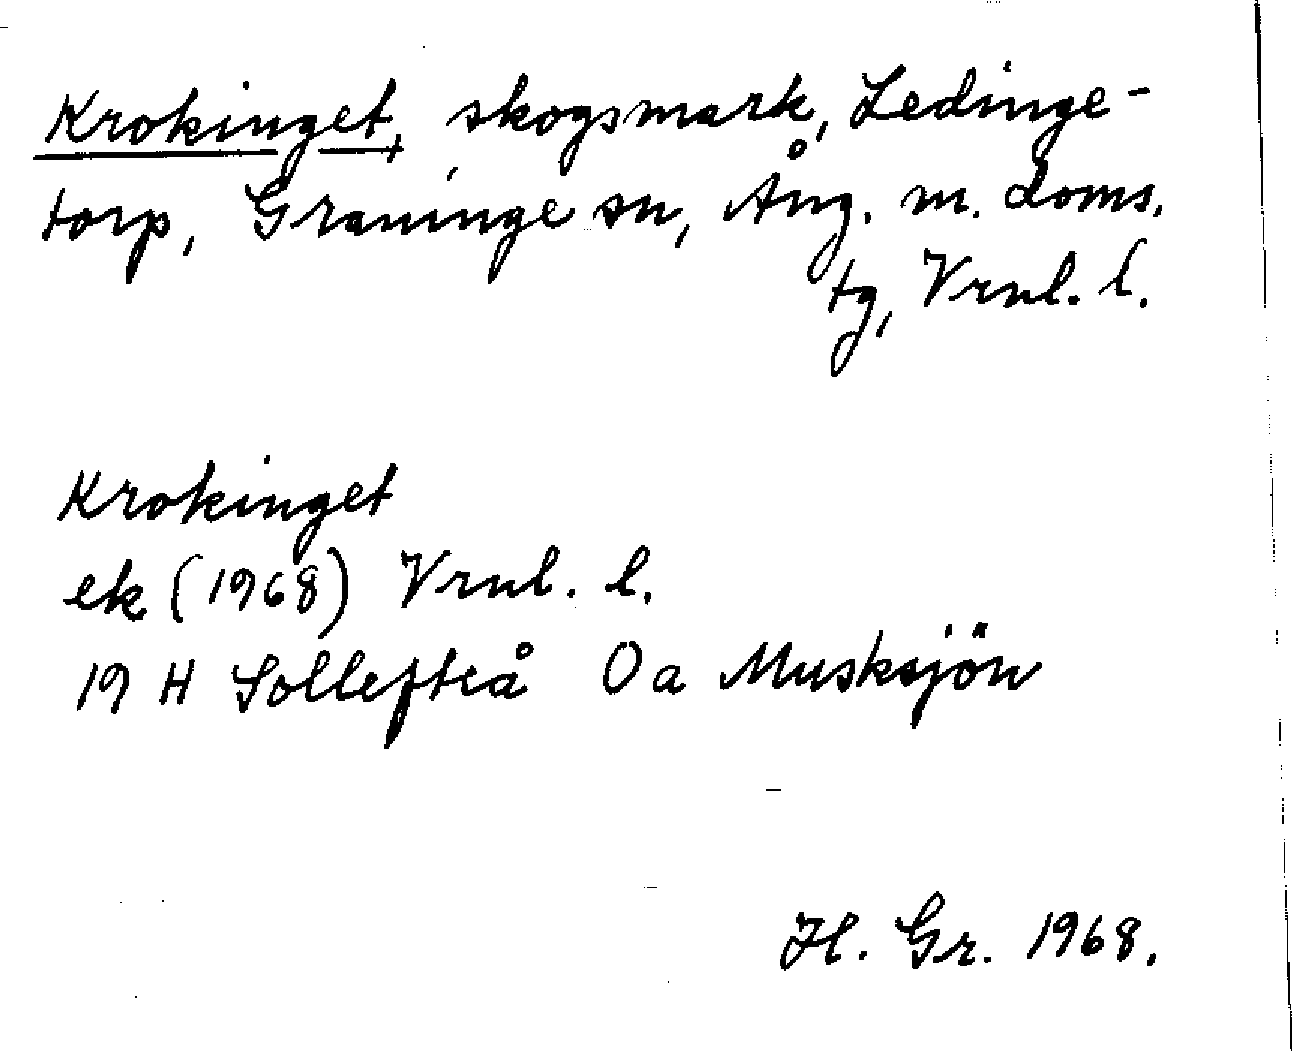 Krokinget, skogsmark, Ledinge-
torp, Graninge sn, Ång. m. doms.
tg, Vrnl. l.
Krokinget
ek (1968) Vrnl. l.
19 H Sollefteå Oa Musksjön
H. Gr. 1968.